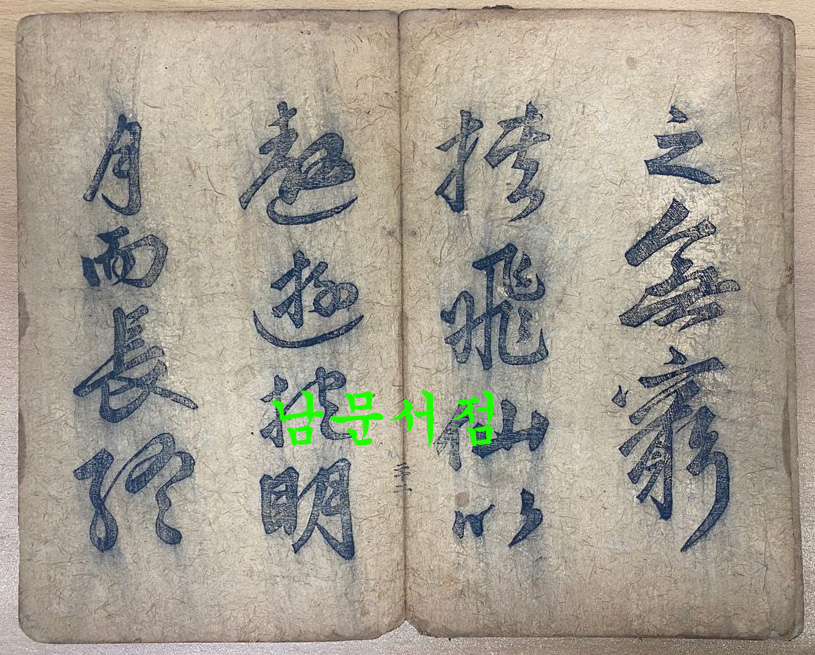 之無窮
挾飛仙以
遨遊抱明
月而長終
三二
남문서점